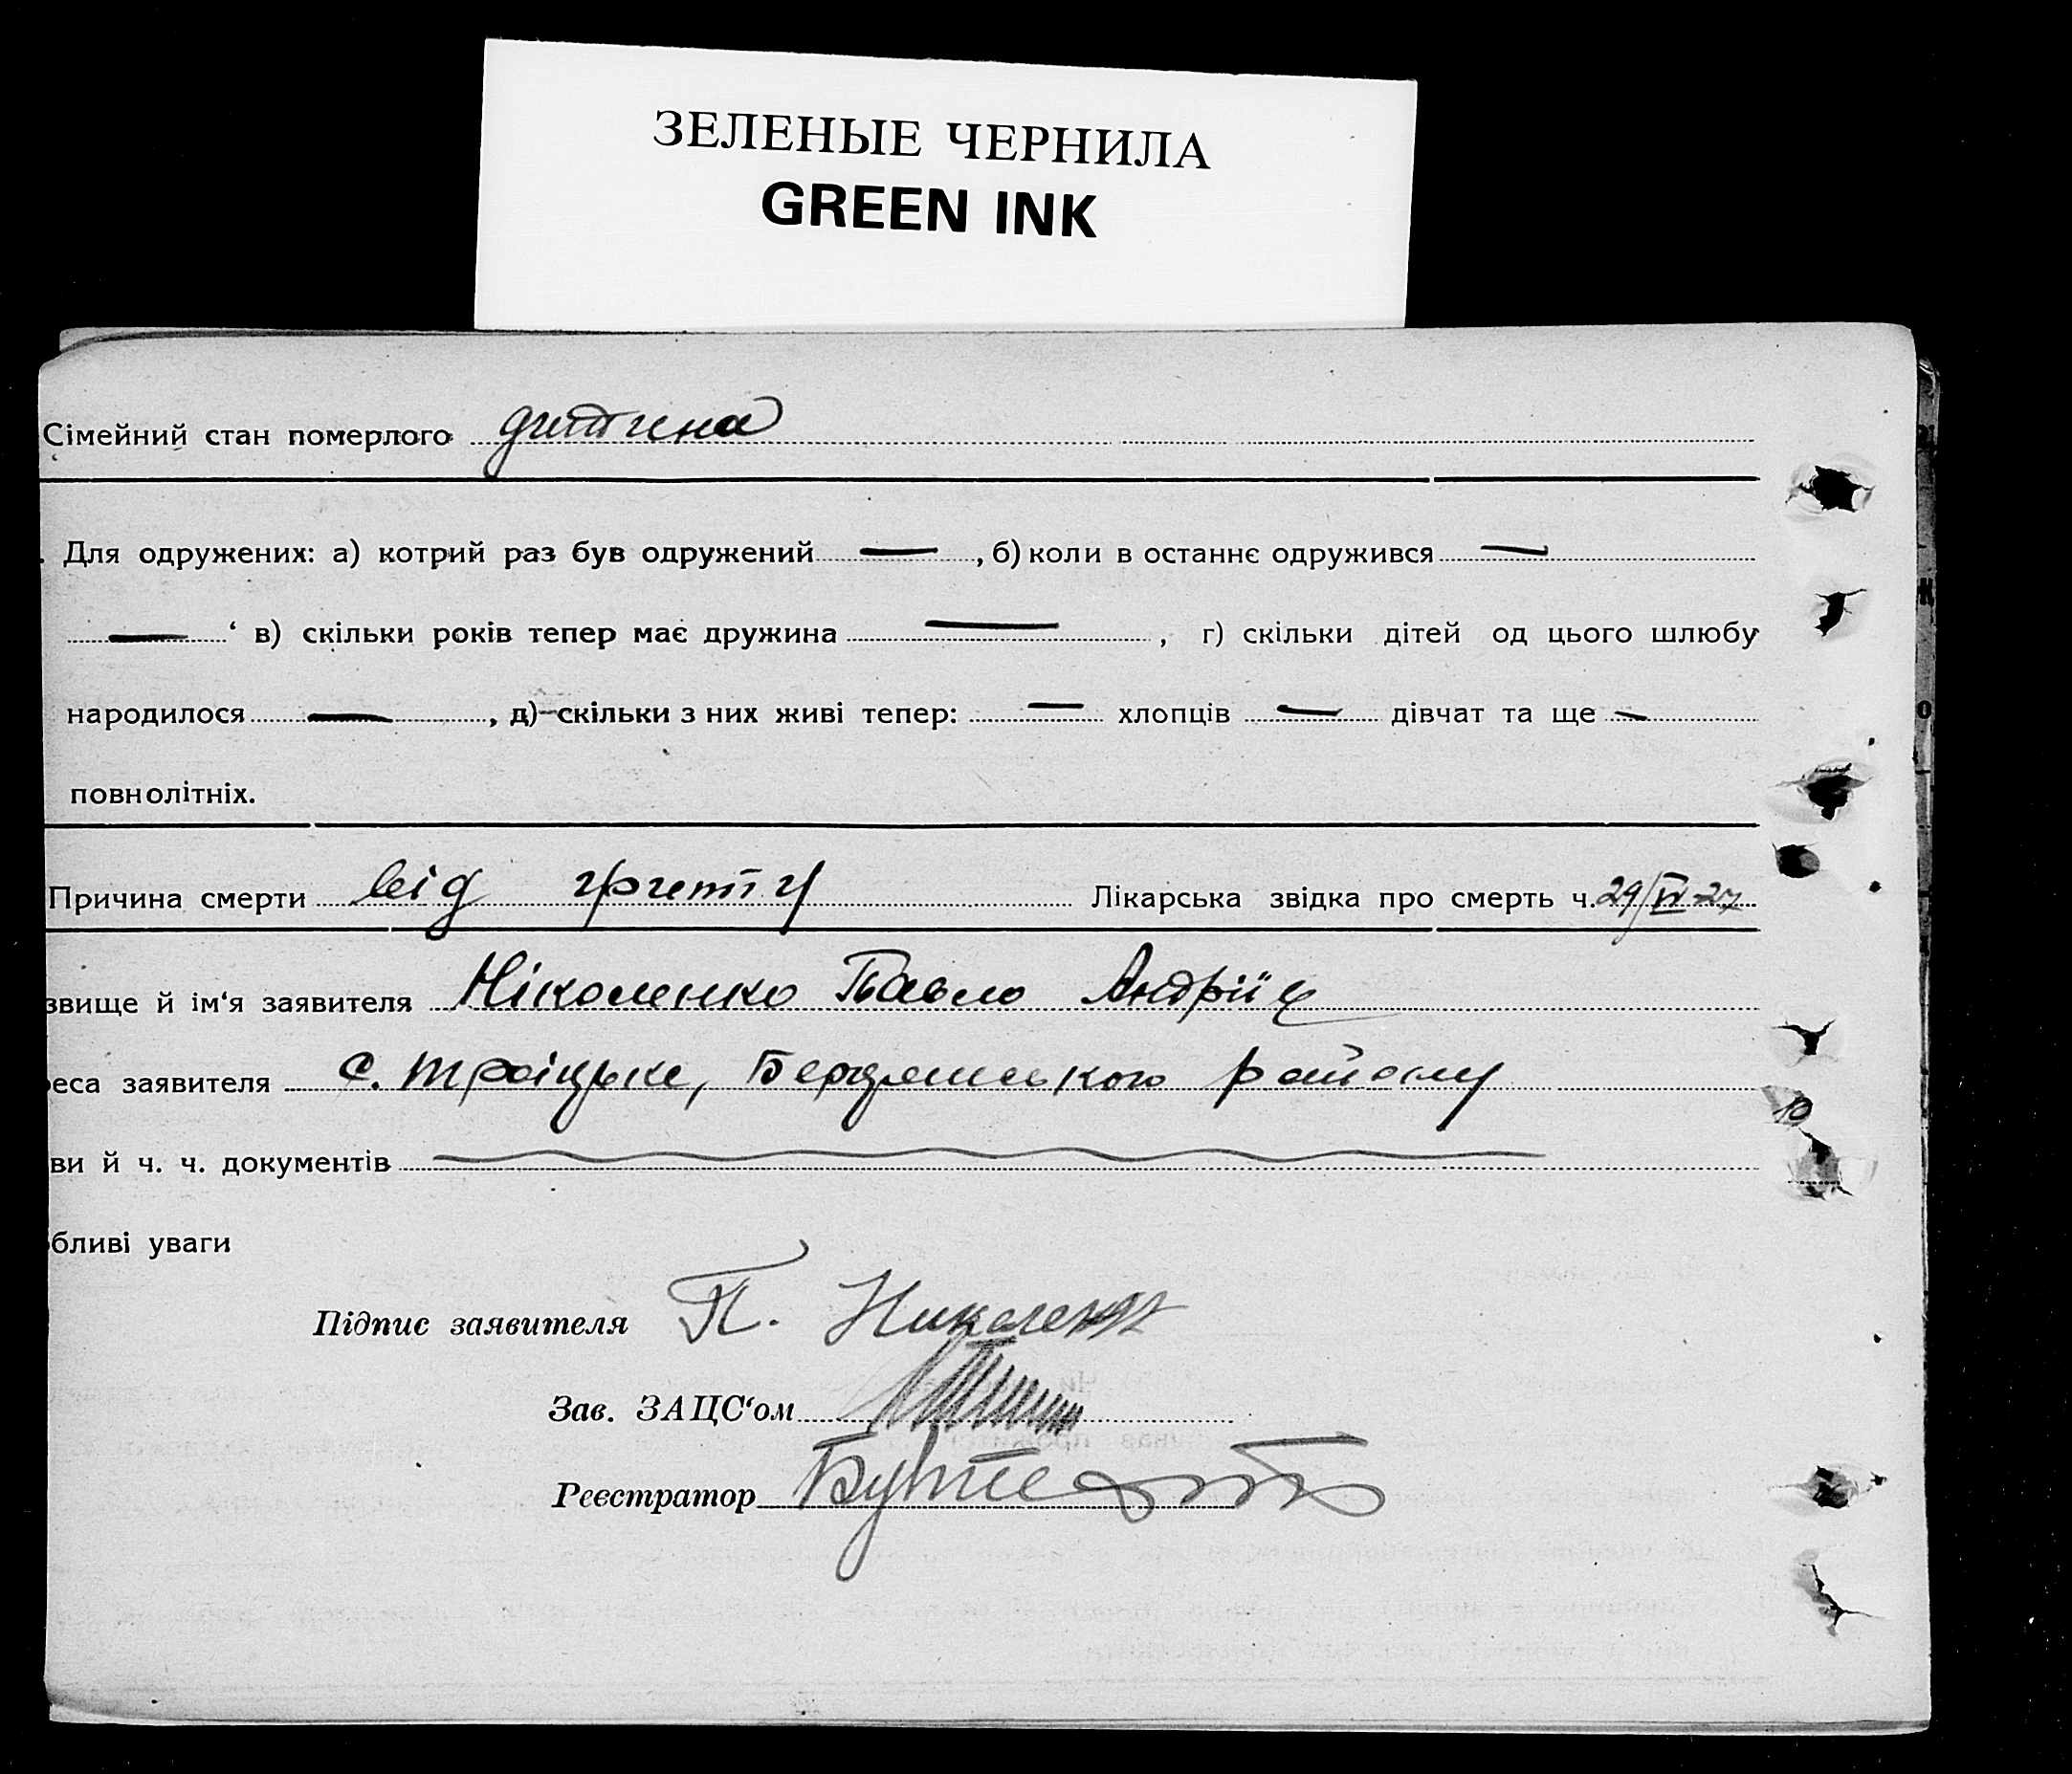 ЗЕЛЕНЫЕ ЧЕРНИЛА
GREEN INK
Сімейний стан померлого дитина
. Для одружених: а) котрий раз був одружений — , б) коли в останнє одружився —
— ‘ в) скільки років тепер має дружина — , г) скільки дітей од цього шлюбу
народилося — , д) скільки з них живі тепер: — хлопців — дівчат та ще —
повнолітніх.
Причина смерти від грипу Лікарська звідка про смерть ч. 29/IV-27
звище й ім‘я заявителя Ніколенко Павло Андрій
еса заявителя с. Троіцьке, Бердянського району
ви й ч. ч. документів
бливі уваги
Підпис заявителя П. Николенко
Зав. ЗАЦС‘ом
Реєстратор